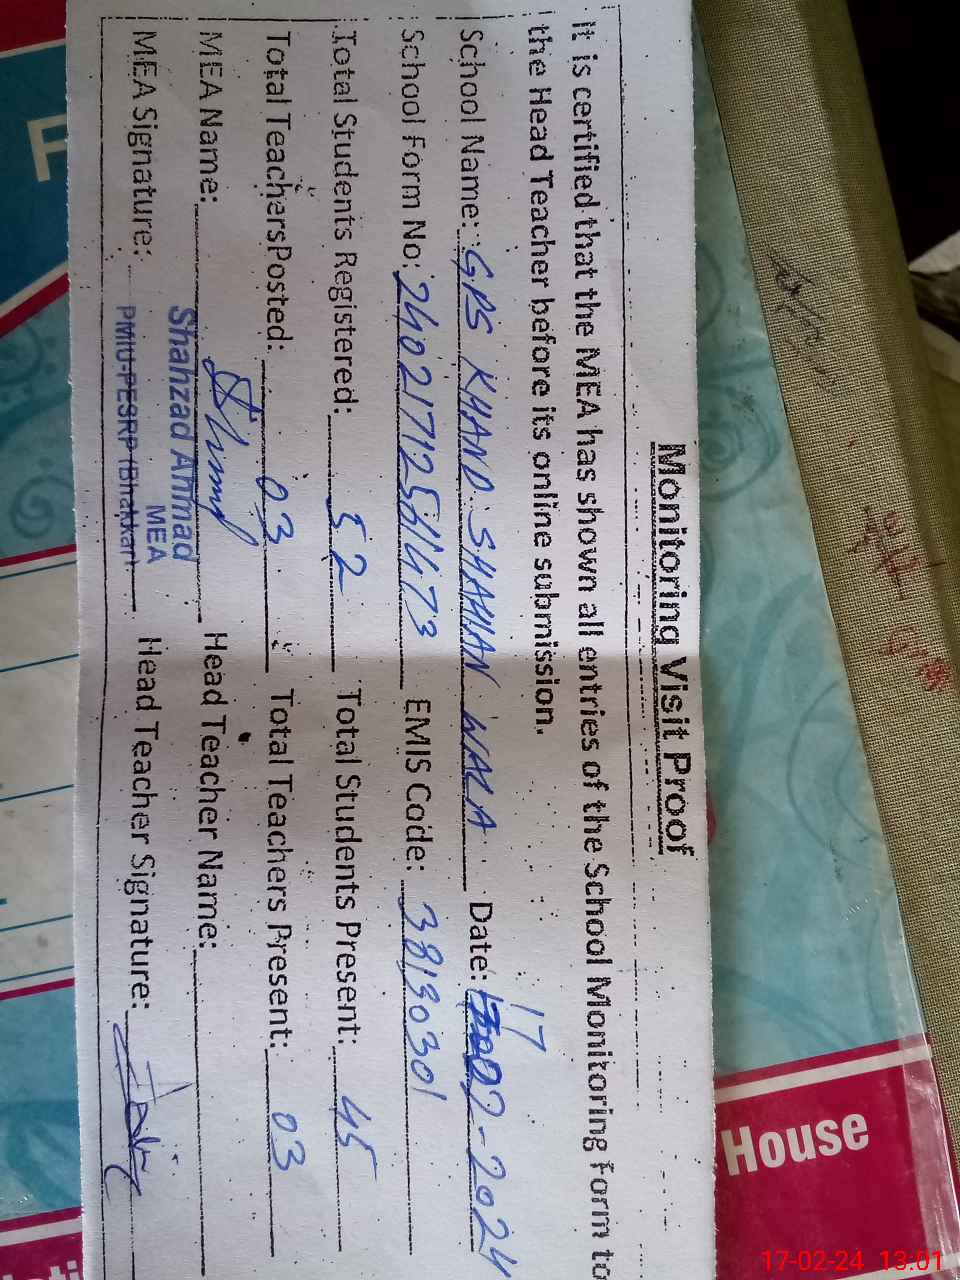 Monitoring Visit Proof
It is certified that the MEA has shown all entries of the School Monitoring Form to
the Head Teacher before its online submission.
17
School Name: GPS KHAND SHAHAN WALA Date: 02-2024
School Form No: EMIS Code: 38130301
Total Students Registered: 52 Total Students Present: 45
Total Teachers Posted: 03 Total Teachers Present: 03
MEA Name: Head Teacher Name:
Shahzad Ahmad
MEA
PMIU-PESRP (Bhakkar)
MEA Signature: Head Teacher Signature:
House
F
17-02-24 13:01